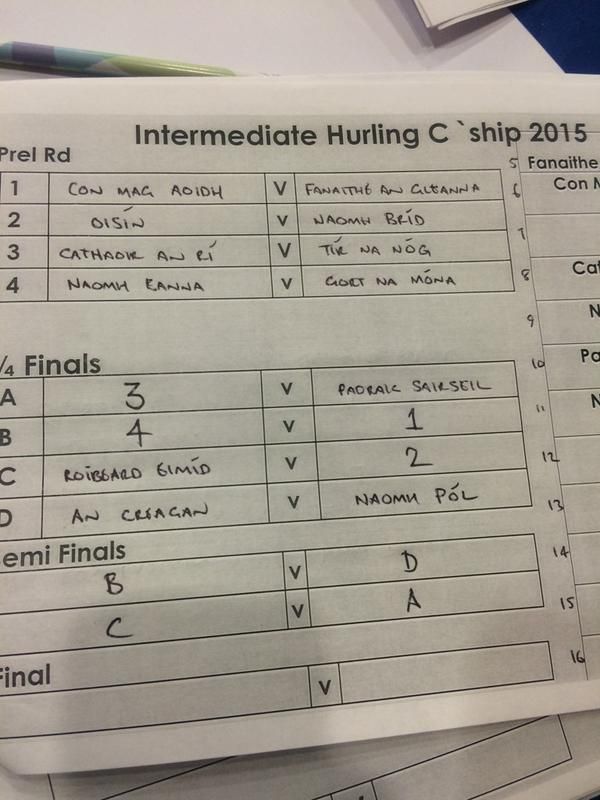 Intermediate Hurling C`ship 2015
Prel Rd
1 CON MAG AOIDH V FANAITHE AN GLEANNA
2 OISÍN V NAOMH BRÍD
3 CATHAOIR AN RÍ V TÍR NA NÓG
4 NAOMH EANNA V GORT NA MÓNA
1/4 Finals
A 3 V PADRAIC SAIRSEIL
B 4 V 1
C ROIBEARD EIMÍD V 2
D AN CREAGAN V NAOMH PÓL
emi Finals
B V D
C V A
Final
V
5 Fanaithe
6 Con M
7
8 Cat
9 N
10 Pa
11 N
12
13
14
15
16
V